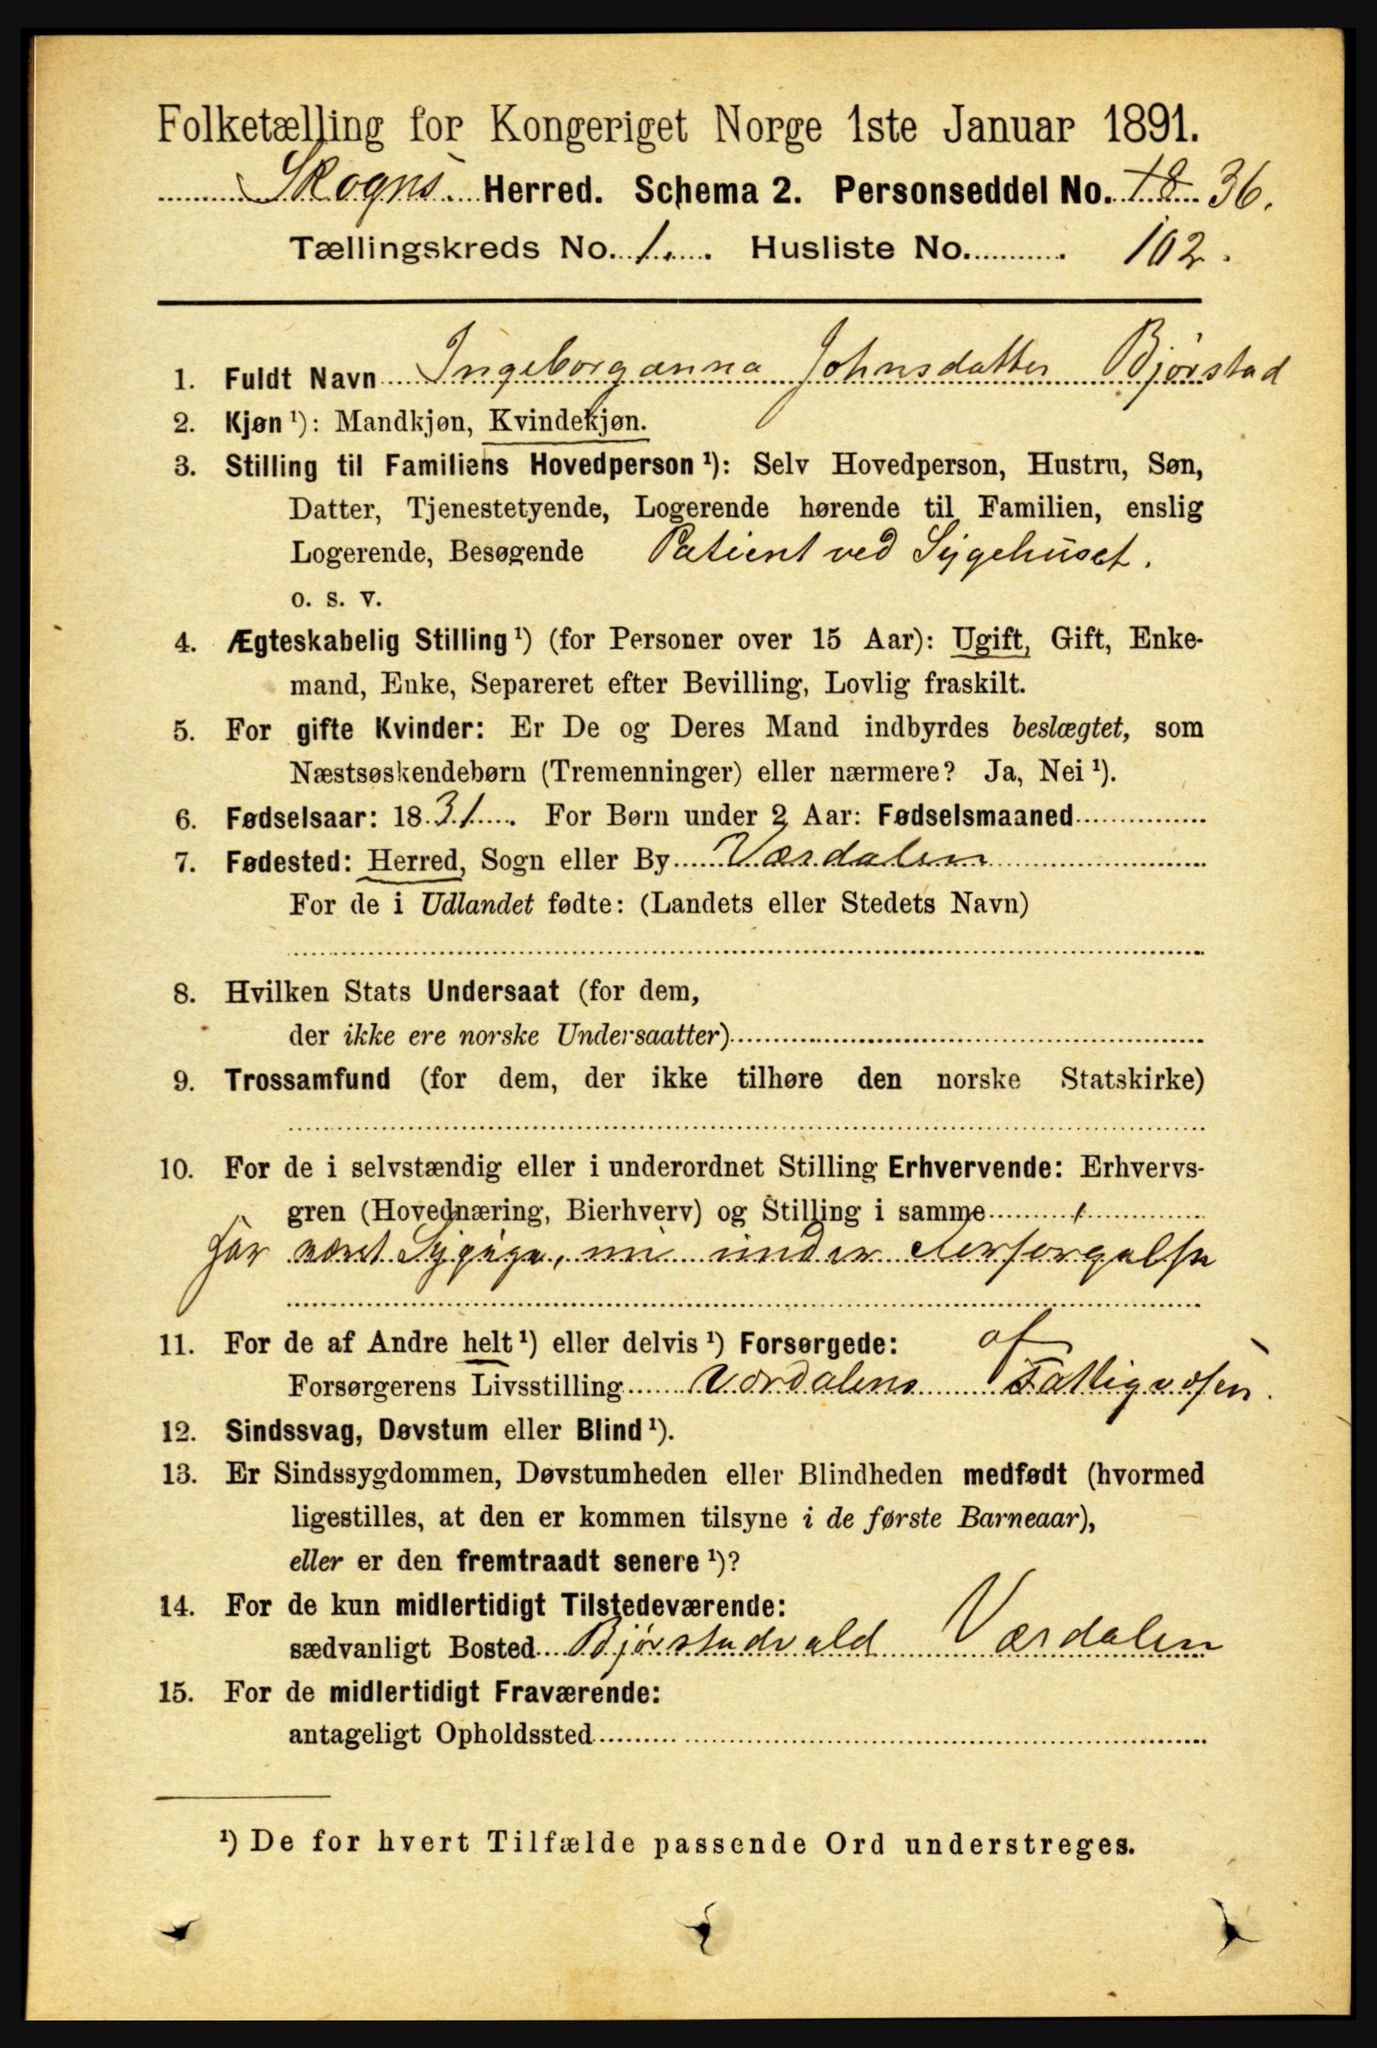 Folketælling for Kongeriget Norge 1ste Januar 1891.
Skogns Herred. Schema 2. Personseddel No. 18 36.
Tællingskreds No. 1. Husliste No. 102.
1. Fuldt Navn Ingeborganna Johnsdatter Bjørstad
2. Kjøn ¹): Mandkjøn, Kvindekjøn.
3. Stilling til Familiens Hovedperson ¹): Selv Hovedperson, Hustru, Søn,
Datter, Tjenestetyende, Logerende hørende til Familien, enslig
Logerende, Besøgende Patient ved Sygehuset.
o. s. v.
4. Ægteskabelig Stilling ¹) (for Personer over 15 Aar): Ugift, Gift, Enke-
mand, Enke, Separeret efter Bevilling, Lovlig fraskilt.
5. For gifte Kvinder: Er De og Deres Mand indbyrdes beslægtet, som
Næstsøskendebørn (Tremenninger) eller nærmere? Ja, Nei ¹).
6. Fødselsaar: 1831. For Børn under 2 Aar: Fødselsmaaned
7. Fødested: Herred, Sogn eller By Værdalen
For de i Udlandet fødte: (Landets eller Stedets Navn)
8. Hvilken Stats Undersaat (for dem,
der ikke ere norske Undersaatter)
9. Trossamfund (for dem, der ikke tilhøre den norske Statskirke)
10. For de i selvstændig eller i underordnet Stilling Erhvervende: Erhvervs-
gren (Hovednæring, Bierhverv) og Stilling i samme
har været Sypige, nu under Forsørgelse
11. For de af Andre helt ¹) eller delvis ¹) Forsørgede: af
Forsørgerens Livsstilling Værdalens Fattigvæsen.
12. Sindssvag, Døvstum eller Blind ¹).
13. Er Sindssygdommen, Døvstumheden eller Blindheden medfødt (hvormed
ligestilles, at den er kommen tilsyne i de første Barneaar),
eller er den fremtraadt senere ¹)?
14. For de kun midlertidigt Tilstedeværende:
sædvanligt Bosted Bjørstadvald Værdalen
15. For de midlertidigt Fraværende:
antageligt Opholdssted
¹) De for hvert Tilfælde passende Ord understreges.